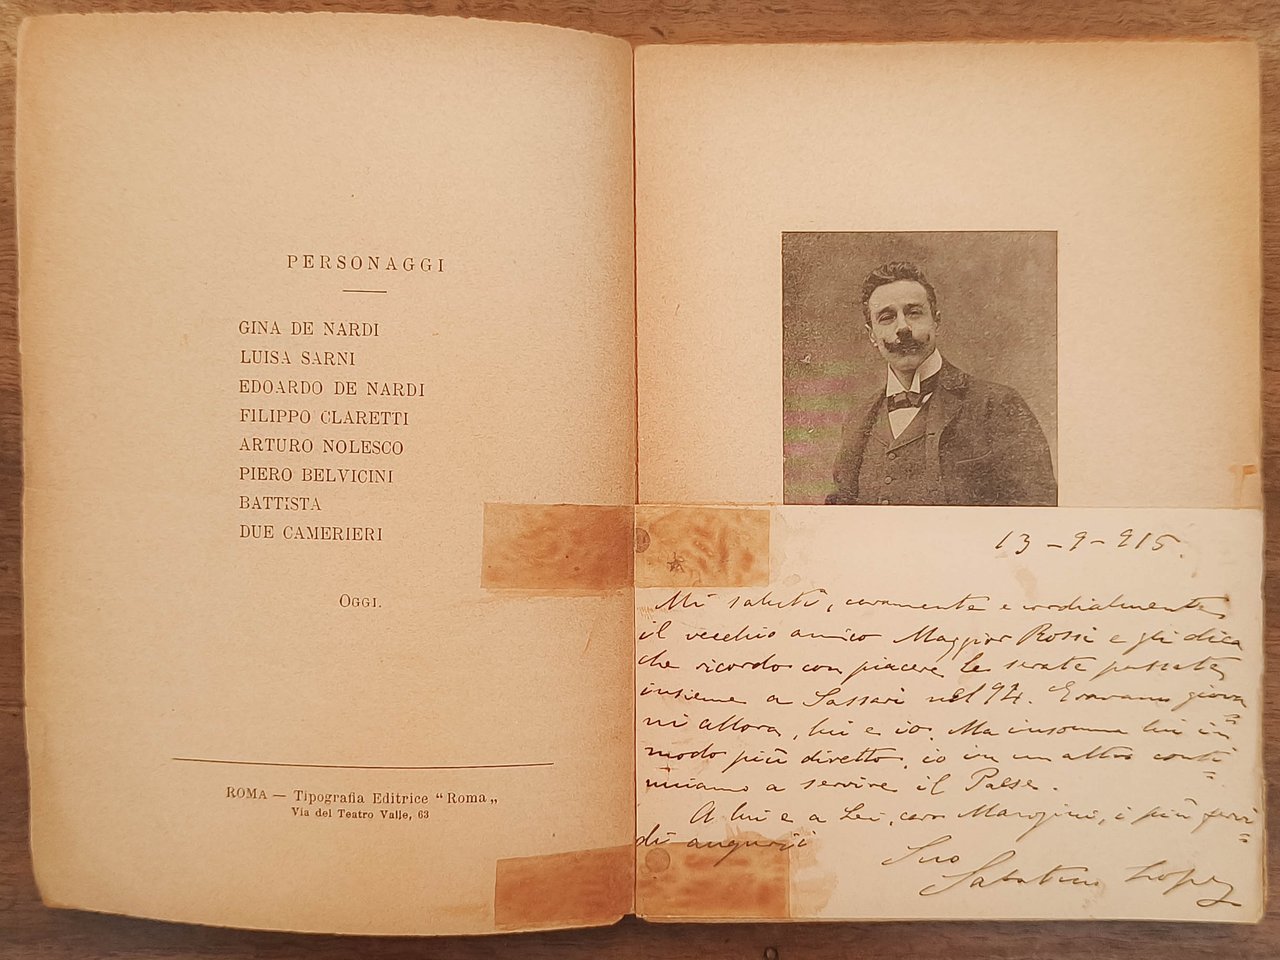 PERSONAGGI
GINA DE NARDI
LUISA SARNI
EDOARDO DE NARDI
FILIPPO CLARETTI
ARTURO NOLESCO
PIERO BELVICINI
BATTISTA
DUE CAMERIERI
OGGI.
ROMA — Tipografia Editrice "Roma„
Via del Teatro Valle, 63
13-9-915.
Mi saluti, caramente e cordialmente,
il vecchio amico Maggior Rossi e gli dica
che ricordo con piacere le serate passate
insieme a Sassari nel 94. Eravamo giova
ni allora, lui e io. Ma insomma lui in
modo più diretto, io in un altro conti=
nuiamo a servire il Paese.
A lui e a Lei, caro Marogini, i più fervi=
di auguri
Suo
Sabatino Lopez